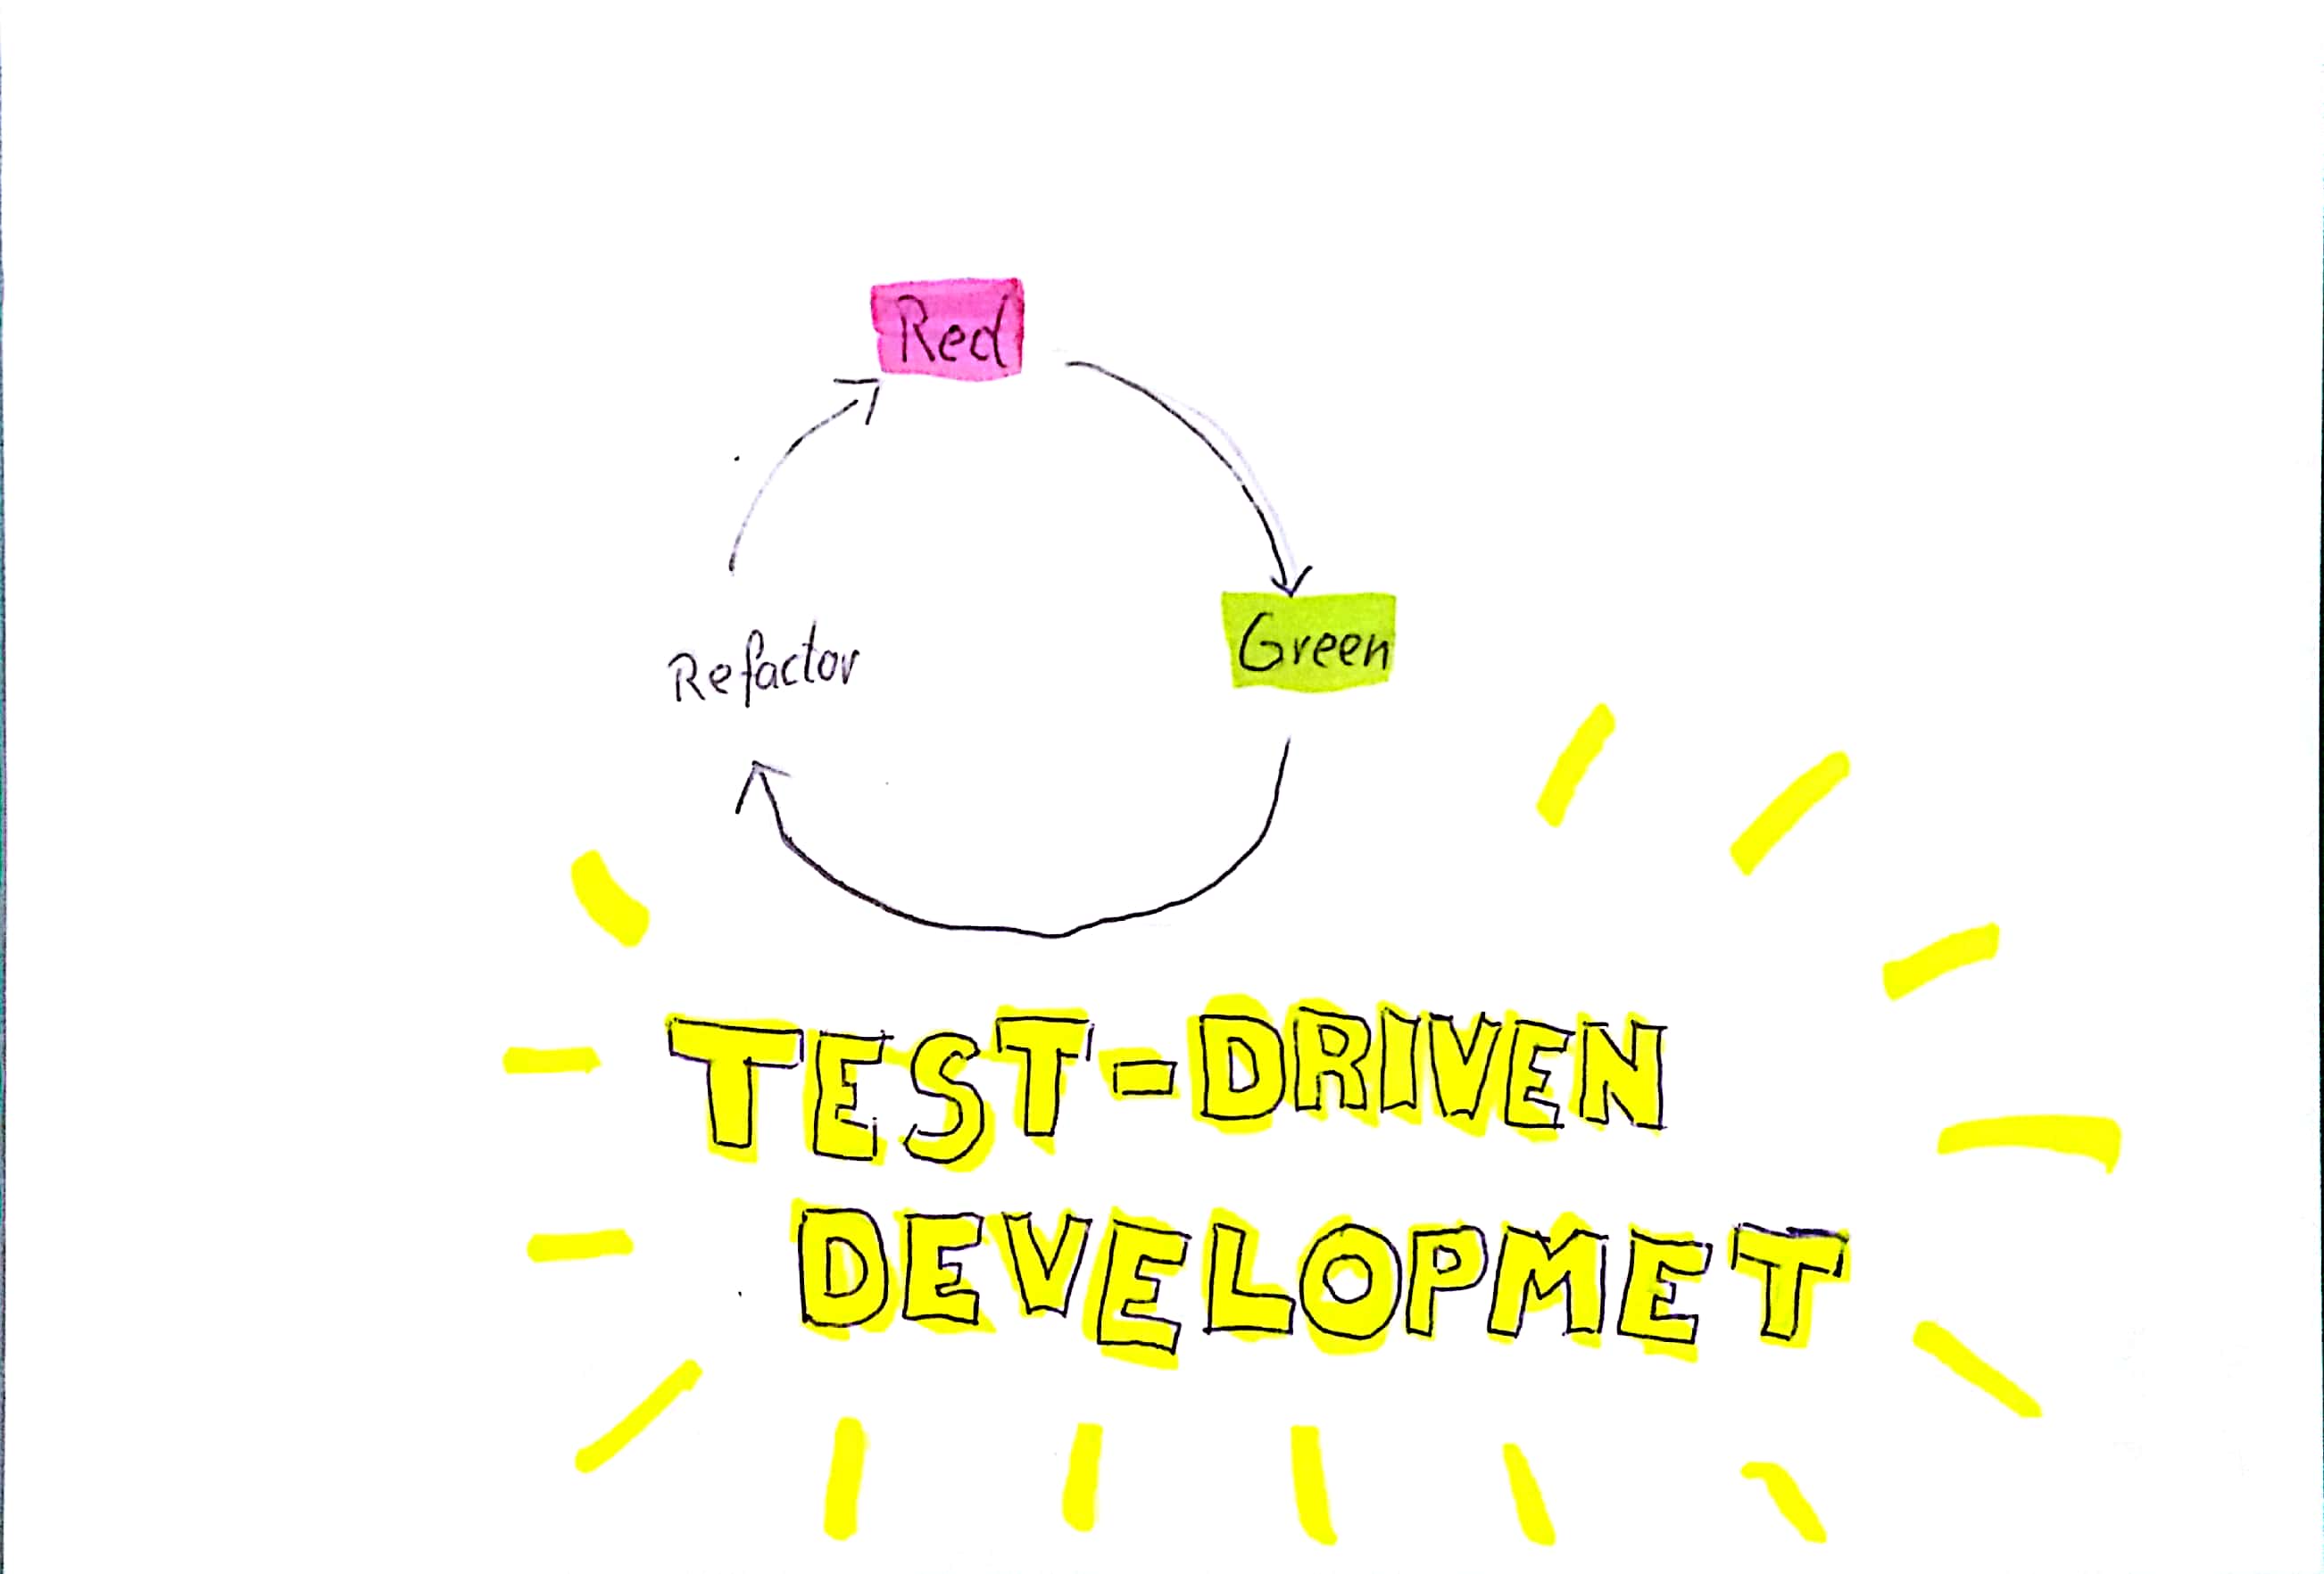 Red
Green
Refactor
TEST-DRIVEN
DEVELOPMET